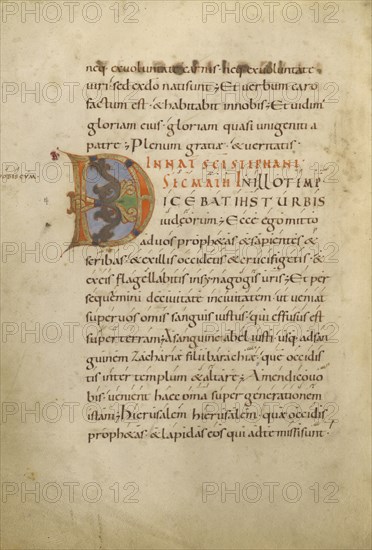 neq· exvoluntate carnis· neq· exvoluntate
uiri· sed exdo natisunt; Et uerbum caro
factum est· & habitabit innobis; Et uidim'
gloriam eius· gloriam quasi unigeniti a
patre; Plenum gratiæ & ueritatis·
IN NAT SCI STEPHANI
D SEC MATH IN ILLO TEMP
ICEBAT IHS TURBIS
iudeorum; Ecce ego mitto
aduos proph&as & sapientes &
scribas· & exillis occidetis & crucifigetis· &
exeis flagellabitis insynagogis uris; Et per
sequemini deciuitate inciuitatem· ut ueniat
super uos omis sanguis iustus· qui effusus est
super terram; Asanguine abel iusti· usq· adsan
guinem Zachariæ filii barachiæ· que occidis
tis inter templum & altare; Amen dico uo
bis· uenient haec oma super generationem
istam; Hierusalem hierusalem· quæ occidis
proph&as· & lapidas eos qui adte missisunt·